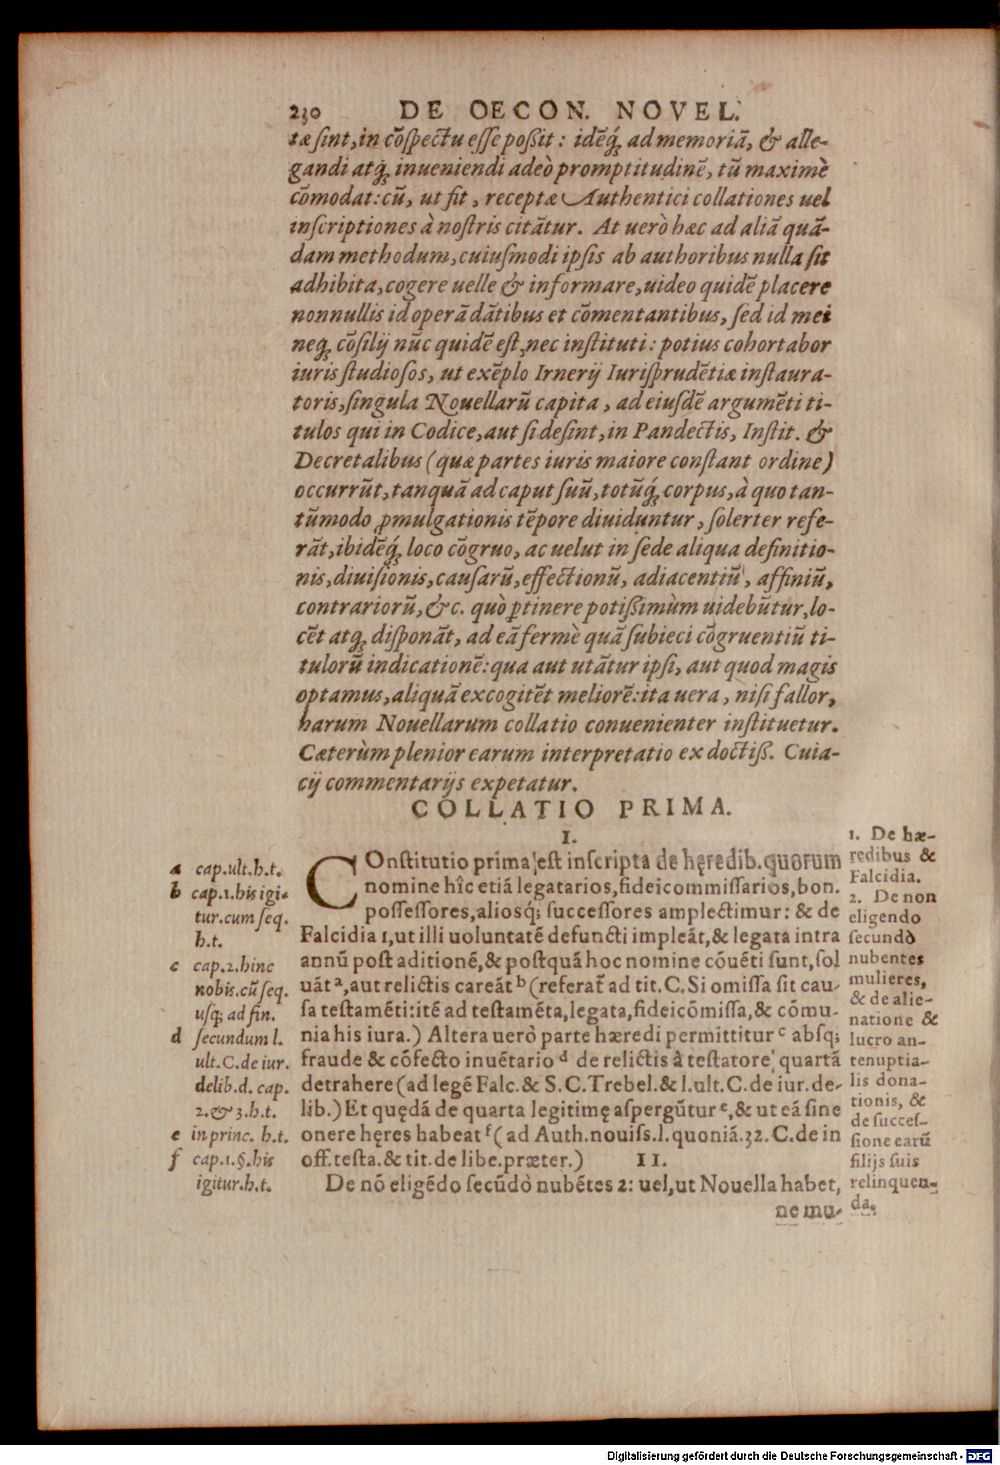 230 DE OECON. NOVEL.
tæ sint, in cõspectu esse poßit: idẽq́; ad memoriã, & alle-
gandi atq́; inueniendi adeò promptitudinẽ, tũ maximè
cõmodat: cũ, ut fit, receptæ Authentici collationes uel
inscriptiones à nostris citãtur. At uerò hæc ad aliã quã-
dam methodum, cuiusmodi ipsis ab authoribus nulla sit
adhibita, cogere uelle & informare, uideo quidẽ placere
nonnullis id operã dãtibus et cõmentantibus, sed id mei
neq; cõsilij nũc quidẽ est, nec instituti: potius cohortabor
iuris studiosos, ut exẽplo Irnerij Iurisprudẽtiæ instaura-
toris, singula Nouellarũ capita, ad eiusdẽ argumẽti ti-
tulos qui in Codice, aut si desint, in Pandectis, Instit. &
Decretalibus (quæ partes iuris maiore constant ordine)
occurrũt, tanquã ad caput suũ, totũq́; corpus, à quo tan-
tũmodo ꝓmulgationis tẽpore diuiduntur, solerter refe-
rãt, ibidẽq́; loco cõgruo, ac uelut in sede aliqua definitio-
nis, diuisionis, causarũ, effectionũ, adiacentiũ, affiniũ,
contrariorũ, &c. quò ꝑtinere potißimùm uidebũtur, lo-
cẽt atq; disponãt, ad eã fermè quã subieci cõgruentiũ ti-
tulorũ indicationẽ: qua aut utãtur ipsi, aut quod magis
optamus, aliquã excogitẽt meliorẽ: ita uera, nisi fallor,
harum Nouellarum collatio conuenienter instituetur.
Cæterùm plenior earum interpretatio ex doctiß. Cuia-
cij commentarijs expetatur.
COLLATIO PRIMA.
I.
COnstitutio prima est inscripta de hęredib. quorum
nomine hîc etiã legatarios, fideicommissarios, bon.
possessores, aliosq́; successores amplectimur: & de
Falcidia 1, ut illi uoluntatẽ defuncti impleãt, & legata intra
annũ post aditionẽ, & postquã hoc nomine cõuẽti sunt, sol
uãt a, aut relictis careãt b (referat̃ ad tit. C. Si omissa sit cau-
sa testamẽti: itẽ ad testamẽta, legata, fideicõmissa, & cõmu-
nia his iura.) Altera uerò parte hæredi permittitur c absq;
fraude & cõfecto inuẽtario d de relictis à testatore quartã
detrahere (ad legẽ Falc. & S. C. Trebel. & l. ult. C. de iur. de-
lib.) Et quędã de quarta legitimę aspergũtur e, & ut eã sine
onere hęres habeat f (ad Auth. nouiss. l. quoniã. 32. C. de in
off. testa. & tit. de libe. præter.) II.
De nõ eligẽdo secũdò nubẽtes 2: uel, ut Nouella habet,
ne mu-
a cap. ult. h. t.
b cap. 1. his igi-
tur. cum seq.
h. t.
c cap. 2. hinc
nobis. cũ seq.
usq; ad fin.
d secundum l.
ult. C. de iur.
delib. d. cap.
2. & 3. h. t.
e in princ. h. t.
f cap. 1. §. his
igitur. h. t.
1. De hæ-
redibus &
Falcidia.
2. De non
eligendo
secundò
nubentes
mulieres,
& de alie-
natione &
lucro an-
tenuptia-
lis dona-
tionis, &
de succes-
sione earũ
filijs suis
relinquen-
da.
Digitalisierung gefördert durch die Deutsche Forschungsgemeinschaft - DFG